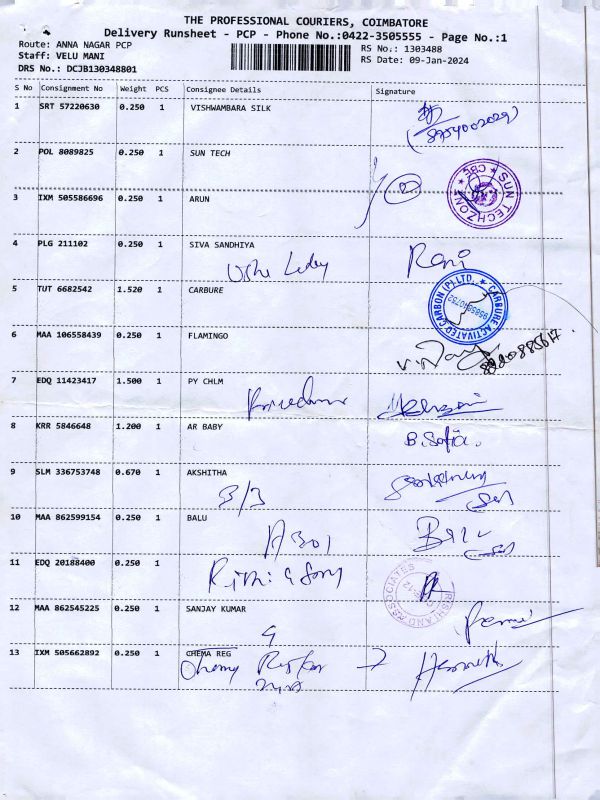 THE PROFESSIONAL COURIERS, COIMBATORE
Delivery Runsheet - PCP - Phone No.:0422-3505555 - Page No.:1
Route: ANNA NAGAR PCP
RS No.: 1303488
Staff: VELU MANI
RS Date: 09-Jan-2024
DRS No.: DCJB130348801
S No Consignment No Weight PCS Consignee Details Signature
1 SRT 57220630 0.250 1 VISHWAMBARA SILK
2 POL 8089825 0.250 1 SUN TECH
SUN TECHZONE * CBE *
3 IXM 505586696 0.250 1 ARUN
4 PLG 211102 0.250 1 SIVA SANDHIYA
Rani
5 TUT 6682542 1.520 1 CARBURE
CARBURE ACTIVATED CARBON (P) LTD.
6 MAA 106558439 0.250 1 FLAMINGO
7 EDQ 11423417 1.500 1 PY CHLM
8 KRR 5846648 1.200 1 AR BABY
B. Sofia.
9 SLM 336753748 0.670 1 AKSHITHA
3/3
10 MAA 862599154 0.250 1 BALU
A301
11 EDQ 20188400 0.250 1
ASSOCIATES
12 MAA 862545225 0.250 1 SANJAY KUMAR
13 IXM 505662892 0.250 1 CHEMA REG